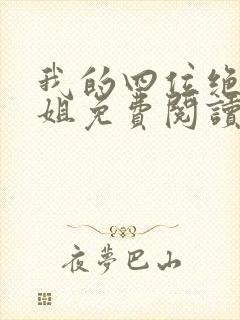 我的四位绝
姐免費閱讀
夜夢巴山